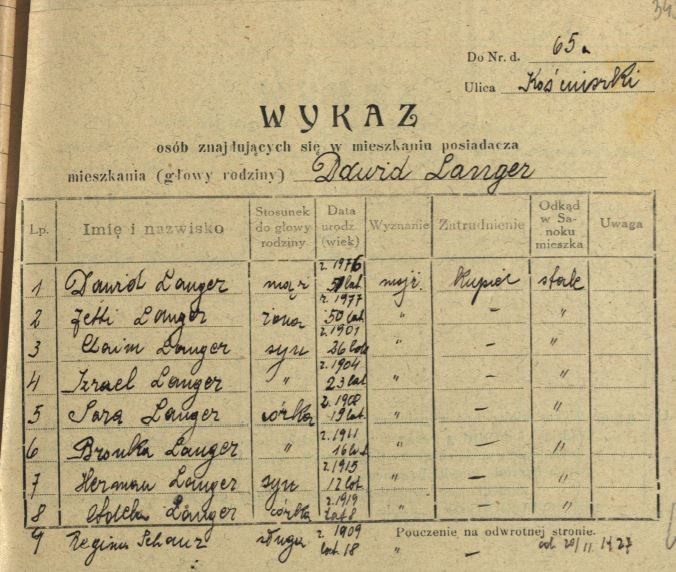 343
Do Nr. d. 65a
Ulica Kościuszki
WYKAZ
osób znajdujących się w mieszkaniu posiadacza
mieszkania (głowy rodziny) Dawid Langer
Lp. Imię i nazwisko Stosunek do głowy rodziny Data urodz. (wiek) Wyznanie Zatrudnienie Odkąd w Sanoku mieszka Uwaga
1 Dawid Langer mąż r. 1976 51 lat mojż. Kupiec stale
2 Jetti Langer żona r. 1977 50 lat " — "
3 Chaim Langer syn r. 1901 26 lat " — "
4 Izrael Langer " r. 1904 23 lat " — "
5 Sara Langer córka r. 1908 19 lat " — "
6 Bronka Langer " r. 1911 16 lat " — "
7 Herman Langer syn r. 1915 12 lat " — "
8 Langer córka r. 1919 lat 8 " — "
Pouczenie na odwrotnej stronie.
9 Regina Schanz sługa r. 1909 lat 18 " — od 20/II 1927